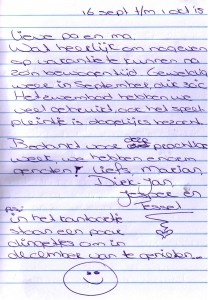 16 sept t/m 1 okt 15
Lieve pa en ma
Wat heerlijk om nog even
op vakantie te kunnen na
zo'n bewogen tijd. Geweldig
weer in September, dus
Het zwembad hebben we
veel gebruikt ook het speel
pleintje is dagelijks bezocht.
Bedankt voor deze prachtige
week, we hebben enorm
genoten! Liefs, Marian
Dirk-Jan
Jesper en
Tessel
PS:
in het kantoortje
staan een paar
dingetjes om in
december van te genieten...